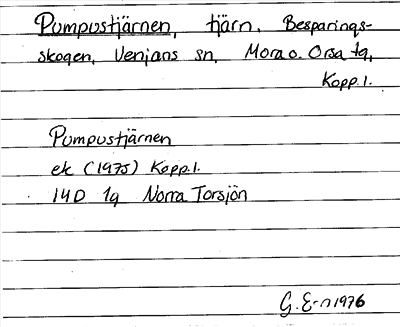 Pumpustjärnen, tjärn, Besparings-
skogen, Venjans sn, Mora o. Orsa tg,
Kopp.l.
Pumpustjärnen
ek (1975) Kopp.l.
14D 1g Norra Torsjön
G. E-n 1976